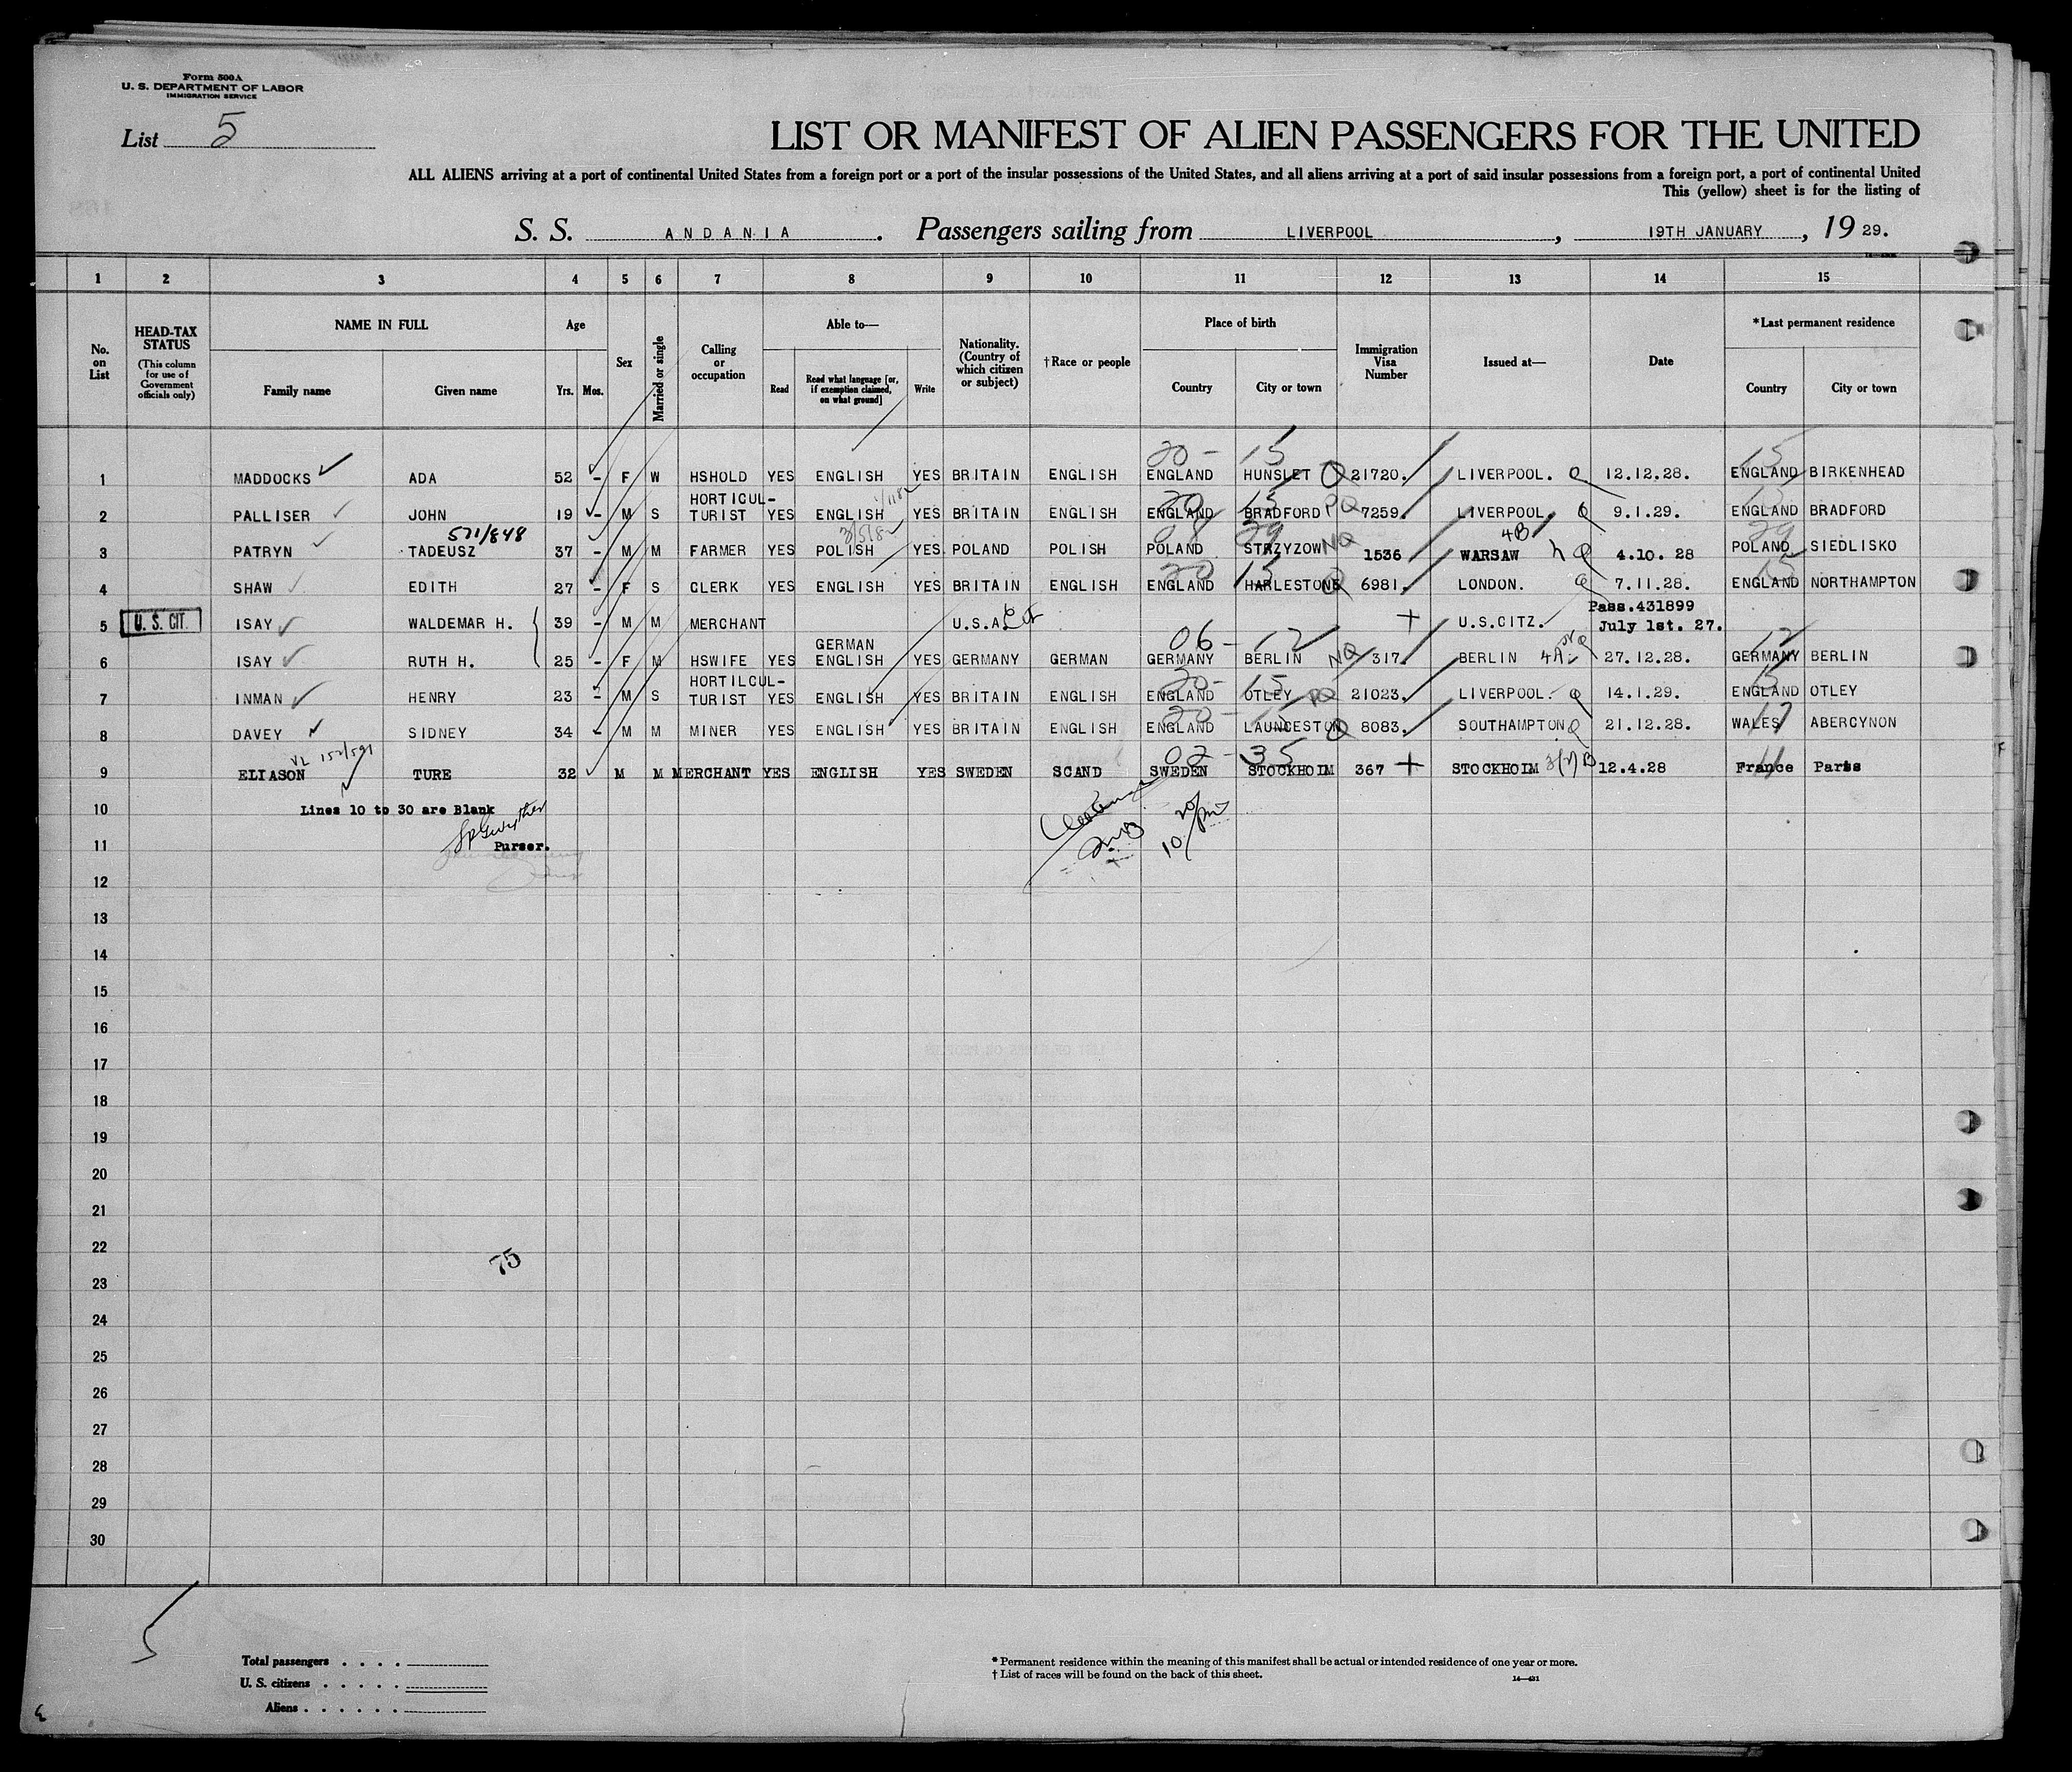 Form 500A
U. S. DEPARTMENT OF LABOR
IMMIGRATION SERVICE
List 5
LIST OR MANIFEST OF ALIEN PASSENGERS FOR THE UNITED
ALL ALIENS arriving at a port of continental United States from a foreign port or a port of the insular possessions of the United States, and all aliens arriving at a port of said insular possessions from a foreign port, a port of continental United
This (yellow) sheet is for the listing of
S. S. ANDANIA. Passengers sailing from LIVERPOOL, 19TH JANUARY, 19 29.
1 2 3 4 5 6 7 8 9 10 11 12 13 14 15
No. on List
HEAD-TAX STATUS (This column for use of Government officials only)
NAME IN FULL
Family name Given name
Age
Yrs. Mos.
Sex
Married or single
Calling or occupation
Able to—
Read Read what language [or, if exemption claimed, on what ground] Write
Nationality. (Country of which citizen or subject)
†Race or people
Place of birth
Country City or town
Immigration Visa Number
Issued at—
Date
*Last permanent residence
Country City or town
20 - 15 15
1 MADDOCKS ADA 52 - F W HSHOLD YES ENGLISH YES BRITAIN ENGLISH ENGLAND HUNSLET Q 21720. LIVERPOOL. Q 12.12.28. ENGLAND BIRKENHEAD
HORTICUL-
2 PALLISER JOHN 19 - M S TURIST YES ENGLISH YES BRITAIN ENGLISH ENGLAND BRADFORD PQ 7259. LIVERPOOL. Q 9.1.29. ENGLAND BRADFORD
571/848 29 4B 29
3 PATRYN TADEUSZ 37 - M M FARMER YES POLISH YES POLAND POLISH POLAND STRZYZOW NQ 1536 WARSAW Q 4.10. 28 POLAND SIEDLISKO
20 15 15
4 SHAW EDITH 27 - F S CLERK YES ENGLISH YES BRITAIN ENGLISH ENGLAND HARLESTONE Q 6981. LONDON. Q 7.11.28. ENGLAND NORTHAMPTON
Pass.431899
5 U. S. CIT. ISAY WALDEMAR H. 39 - M M MERCHANT U.S.A. U.S.CITZ. July 1st. 27.
GERMAN 06 - 12 12
6 ISAY RUTH H. 25 - F M HSWIFE YES ENGLISH YES GERMANY GERMAN GERMANY BERLIN NQ 317. BERLIN 27.12.28. GERMANY BERLIN
HORTILCUL- 20 - 15 15
7 INMAN HENRY 23 - M S TURIST YES ENGLISH YES BRITAIN ENGLISH ENGLAND OTLEY PQ 21023. LIVERPOOL. Q 14.1.29. ENGLAND OTLEY
20 - 17
8 DAVEY SIDNEY 34 - M M MINER YES ENGLISH YES BRITAIN ENGLISH ENGLAND LAUNCESTON Q 8083. SOUTHAMPTON Q 21.12.28. WALES ABERCYNON
VL 152/591 02 - 35 11
9 ELIASON TURE 32 M M MERCHANT YES ENGLISH YES SWEDEN SCAND SWEDEN STOCKHOIM 367 STOCKHOIM 12.4.28 France Paris
10 Lines 10 to 30 are Blank
11 Purser.
12
13
14
15
16
17
18
19
20
21
22
75
23
24
25
26
27
28
29
30
5
Total passengers . . . .
U. S. citizens . . . . .
Aliens . . . . . .
* Permanent residence within the meaning of this manifest shall be actual or intended residence of one year or more.
† List of races will be found on the back of this sheet.
14—421